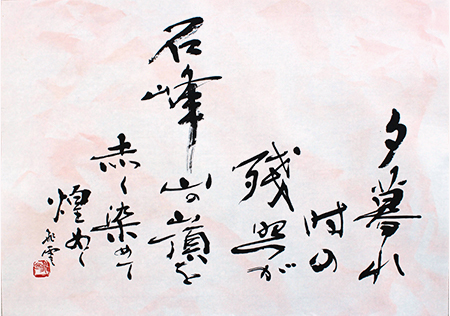 夕暮れ
時の
残照が
石峰
山の頂を
赤く染めて
煌めく